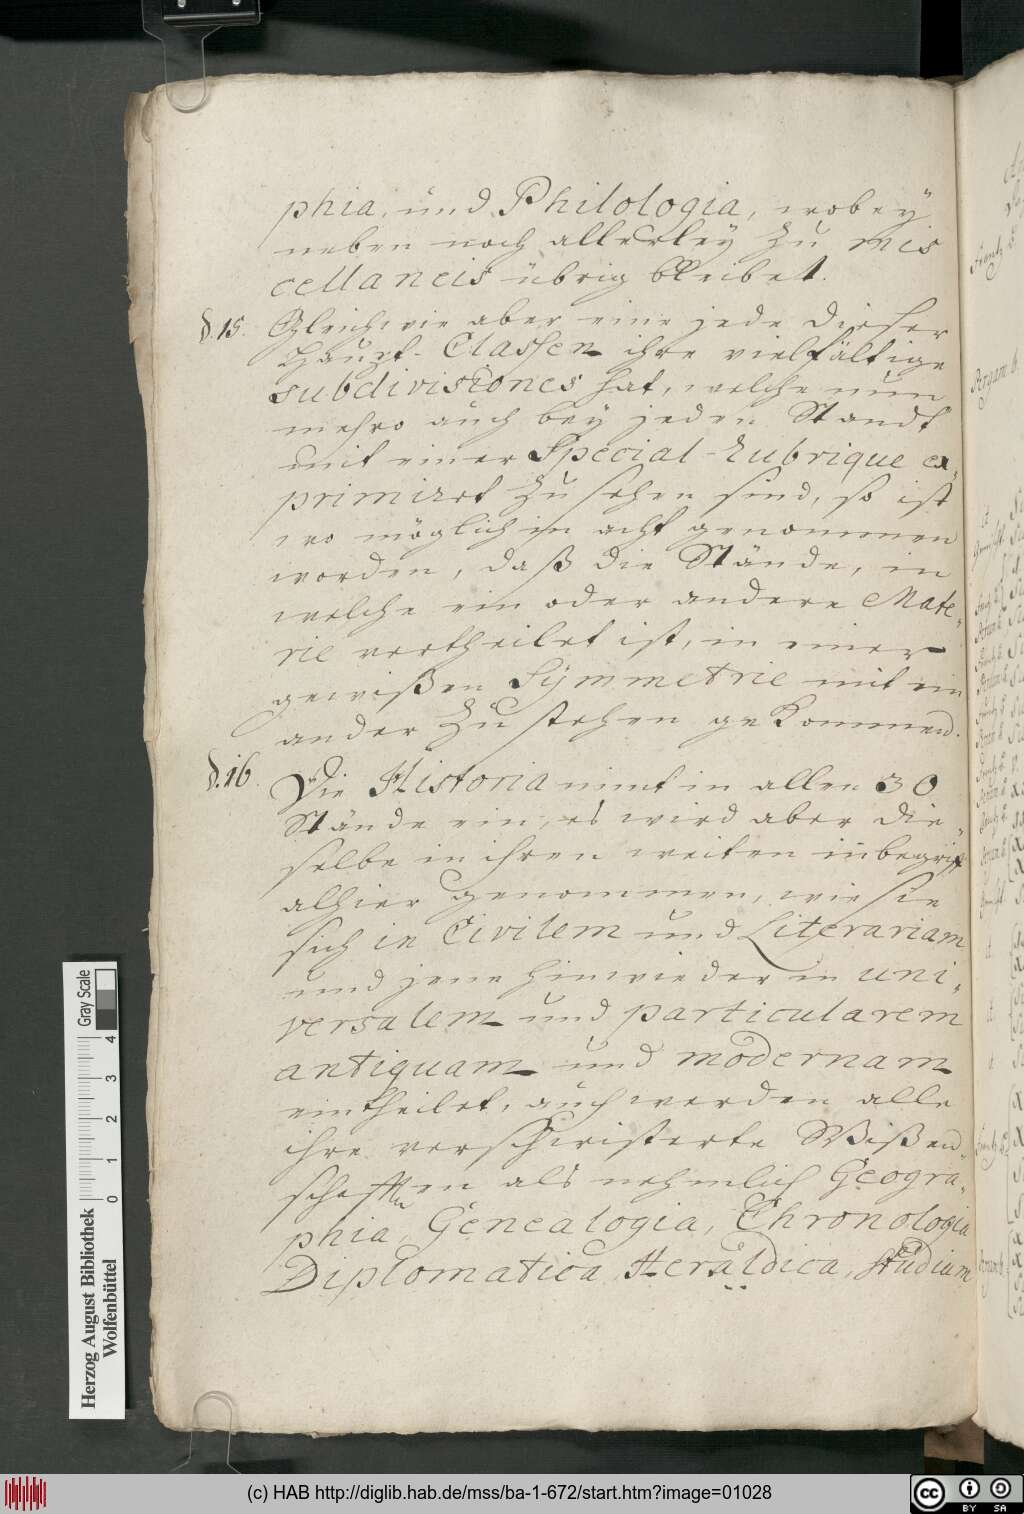 phia, und Philologia, wobey
neben noch allerley zu mis
cellaneis übrig bleibet.
§. 15. Gleichwie aber eine jede dieser
Haupt-Classen ihre vielfältige
subdivisiones hat, welche nun
mehro auch bey jeden Standt
mit einer Special-Rubrique ex-
primiret zu sehen sind, so ist
wo möglich in acht genommen
worden, daß die Stände, in
welche ein oder andere Mate-
rie vertheilet ist, in einer
gewißen Symmetrie mit ein
ander zu stehen gekommen.
§. 16. Die Historia nimt in allen 30
Stände ein, es wird aber die-
selbe in ihren weiten inbegriff
alhier genommen, wie sie
sich in Civilem und Literariam
und jene hinwieder in uni-
versalem und particularem
antiquam und modernam
eintheilet, auch werden alle
ihre verschwisterte Wißen-
schafften als nehmlich Geogra-
phia, Genealogia, Chronologia
Diplomatica, Heraldica, Studium
Gray Scale
4
3
2
1
0
Herzog August Bibliothek
Wolfenbüttel
(c) HAB http://diglib.hab.de/mss/ba-1-672/start.htm?image=01028
cc BY SA